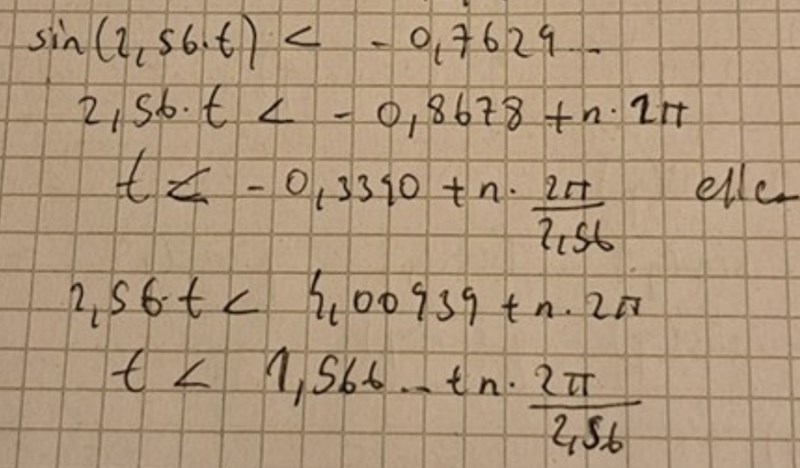 sin(2,56·t) < - 0,7629...
2,56·t < - 0,8678 + n·2π
t < - 0,3390 + n· 2π/2,56 eller
2,56·t < 4,00939 + n·2π
t < 1,566... + n· 2π/2,56